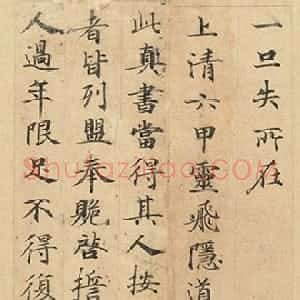 一旦失所在
上清六甲靈飛隱道
此真書當得其人按
者皆列盟奉贶啓誓
人過年限足不得復